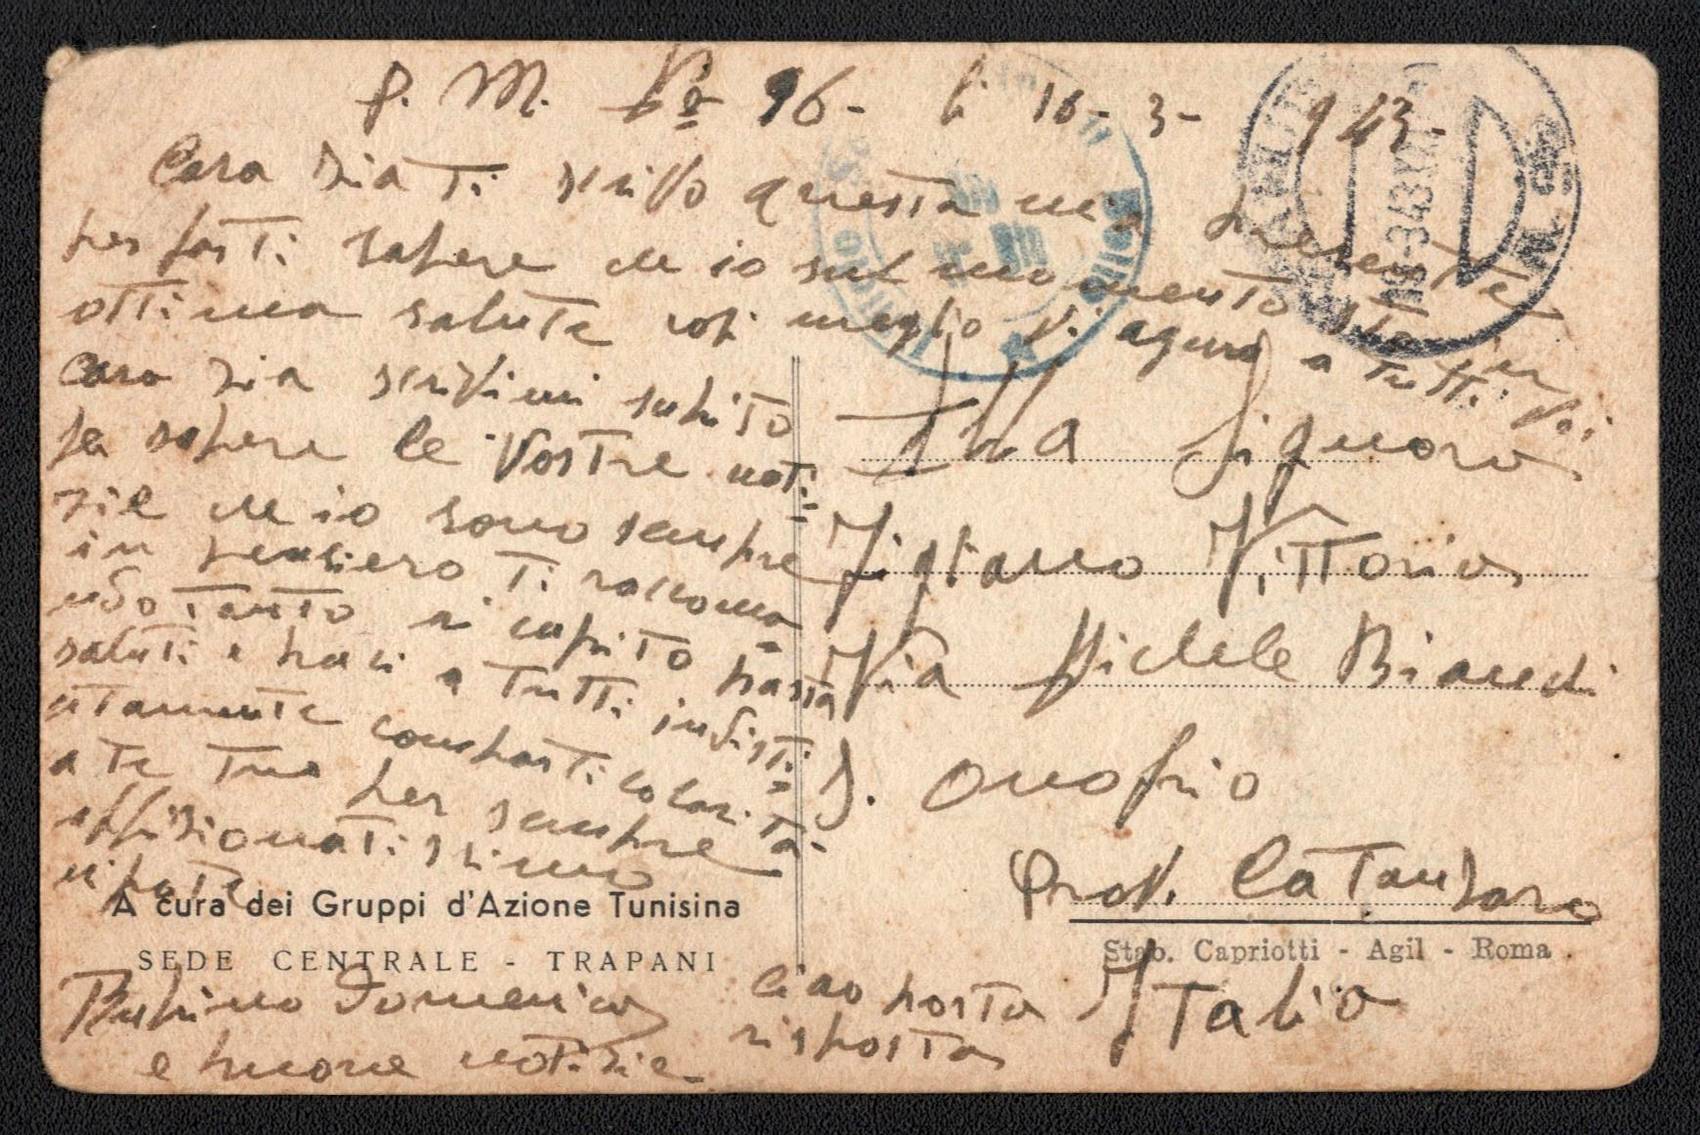 P. M. Nº 96- li 16-3-943-
Cara zia Ti scrivo questa mia presente
per farti sapere che io sul momento sto in
ottima salute così meglio Vi aguro a tutti Voi
cara zia scrivimi subito
per sapere le Vostre noti=
zie che io sono sempre
in pensiero Ti raccoma=
ndo tanto ai capito basta
saluti e baci a tutti indisti=
ntamente
a te tuo per sempre
affisionatissimo
nipote
A cura dei Gruppi d'Azione Tunisina
SEDE CENTRALE - TRAPANI
Rubino Domenico
e buone notizie-
ciao posta
risposta
Illa Signora
Figliano Vittoria
Via Michele Bianchi
S. Onofrio
Prov. Catanzaro
Stab. Capriotti - Agil - Roma
Italia